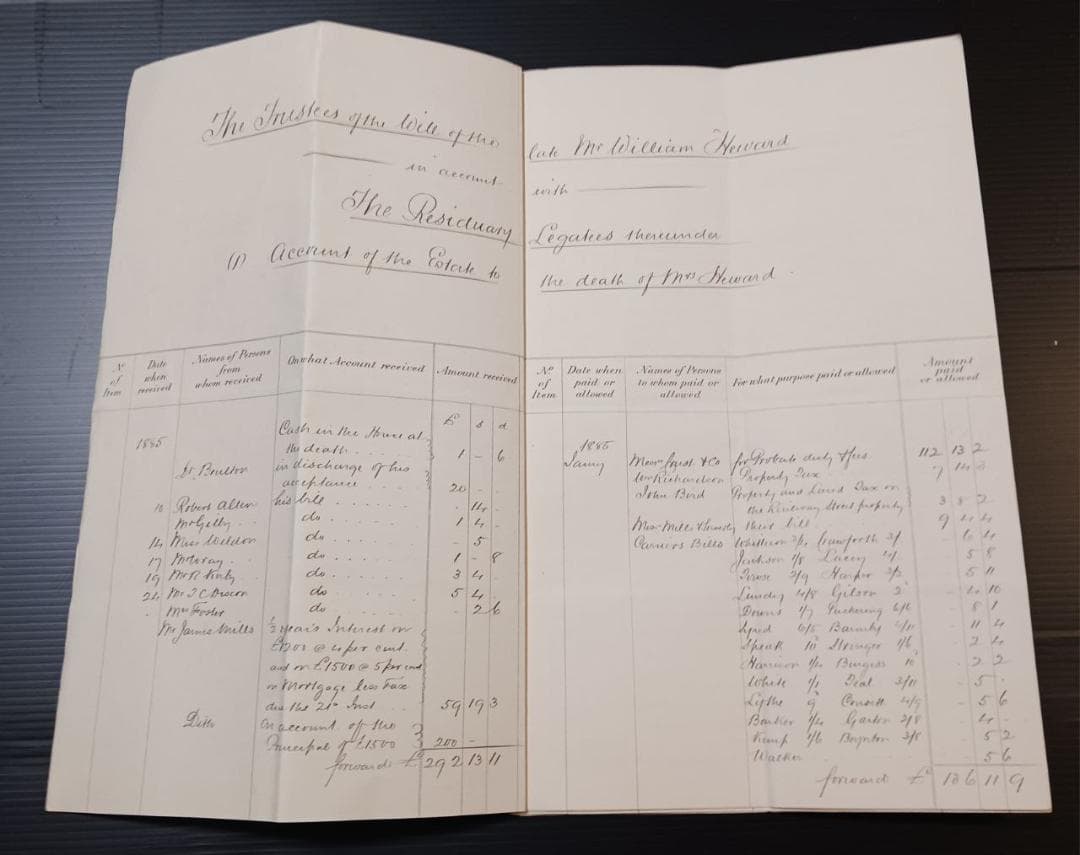 The Trustees of the Will of the late Mr William Heward
in account with
The Residuary Legatees thereunder
(1) Account of the Estate to the death of Mrs Heward
No of Item
Date when received
Names of Persons from whom received
On what Account received
Amount received
£ s d
1885
Cash in the House at
the death 1 - 6
Dr in discharge of his
acceptance 20 - -
10 Robert Allen his bill - 14 -
do 1 4 -
14 Miss Weldon do - 5 -
17 do 1 - 8
19 do 3 4 -
24 Mr J C do 5 4 -
Mrs Foster do - 2 6
Mr James Mills ½ year's Interest on
£1200 @ 4 per cent.
and on £1500 @ 5 per cent
on Mortgage less Tax
due the 21st Inst 59 19 3
Ditto On account of the
Principal of £1500 200 -
forward £ 292 13 11
No of Item
Date when paid or allowed
Names of Persons to whom paid or allowed
For what purpose paid or allowed
Amount paid or allowed
1885
Jany & Co for Probate duty & fees 112 13 2
Wm Richardson Property Tax
John Bird Property and Land Tax on
the Railway Street property 3 8 2
their bill 9 4 4
Carriers Bills 6 4
Jackson 1/8 Lacey 5 8
Harper 5 11
Lundy 4/8 Gilson 4 10
Downs 1/7 Puckering 6/6 8 1
6/5 Barmby 11 4
Speak 10 Stringer 1/6 2 4
Harrison Burgess 10 2 2
White 1/1 Deal 3/11 5 -
Lythe 9 Consett 4/9 5 6
Barker 1/4 Garton 2/8 4 -
Kemp 1/6 Boynton 3/8 5 2
Walker 5 6
forward £ 136 11 9